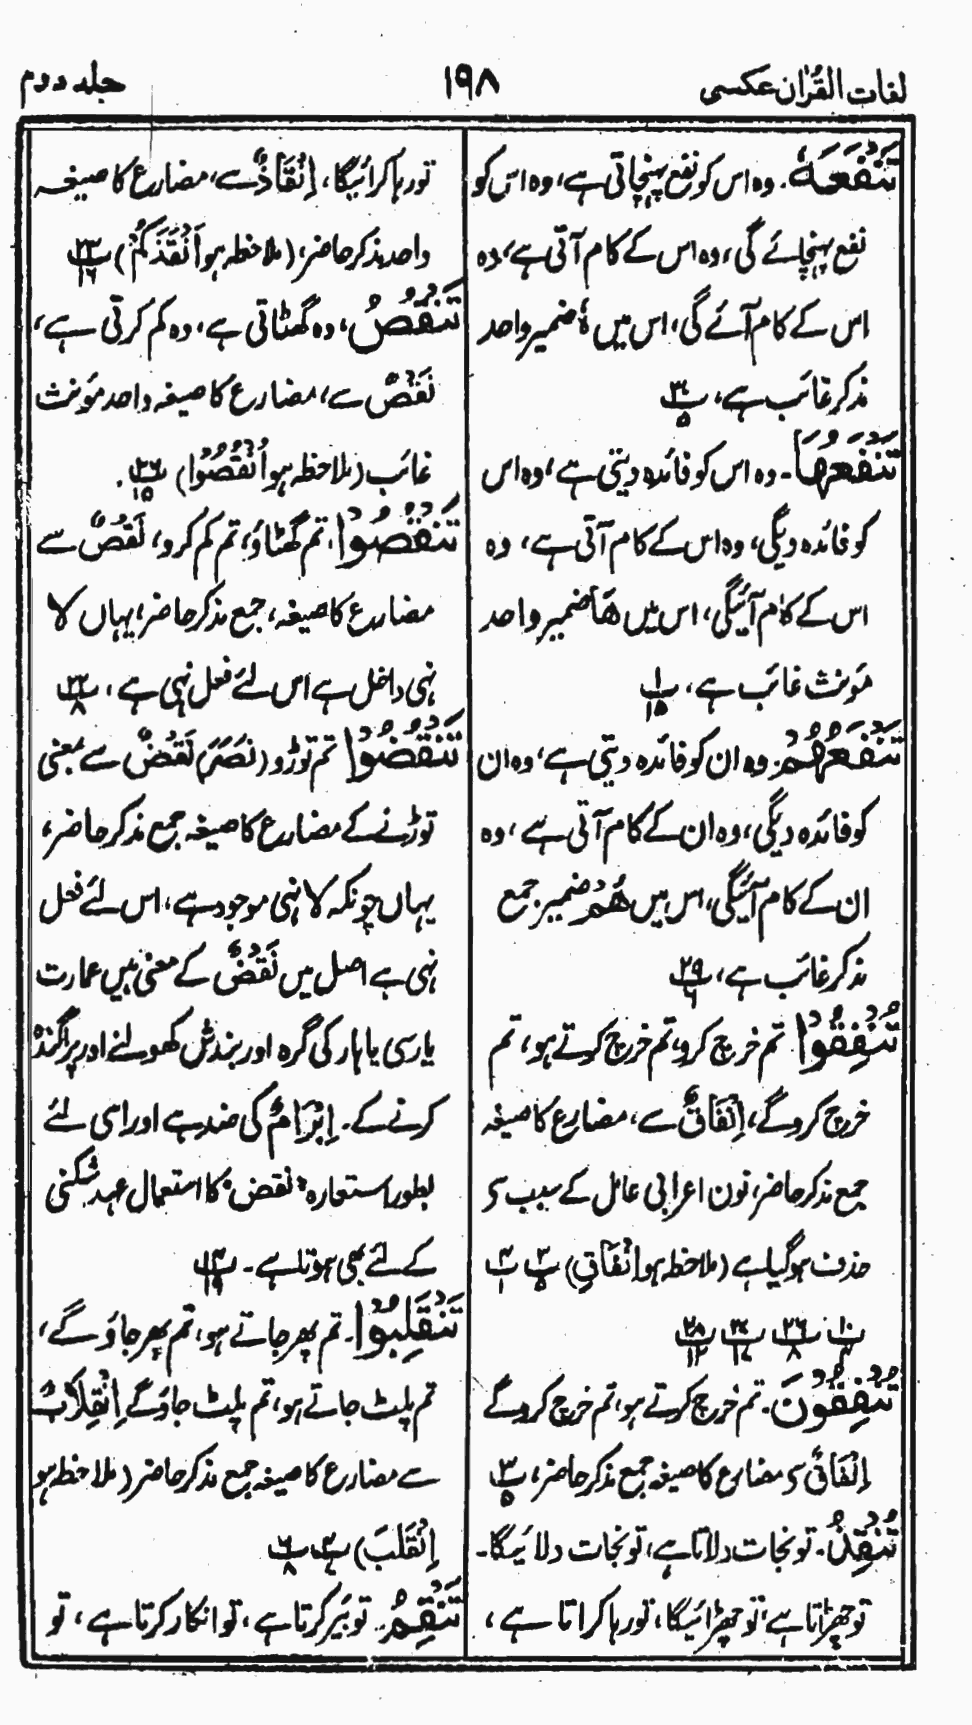 لغات القرآن عکسی
۱۹۸
جلد دوم
تَنْفَعَهٗ۔ وہ اس کو نفع پہنچاتی ہے، وہ اس کو
نفع پہنچائے گی، وہ اس کے کام آتی ہے، وہ
اس کے کام آئے گی، اس میں ہٗ ضمیر واحد
مذکر غائب ہے،
تَنْفَعُهَا۔ وہ اس کو فائدہ دیتی ہے، وہ اس
کو فائدہ دیگی، وہ اس کے کام آتی ہے، وہ
اس کے کام آئیگی، اس میں ھَا ضمیر واحد
مؤنث غائب ہے، ۱ ۱۵
تَنْفَعُهُمْ۔ وہ ان کو فائدہ دیتی ہے، وہ ان
کو فائدہ دیگی، وہ ان کے کام آتی ہے، وہ
ان کے کام آئیگی، اس میں ھُمْ ضمیر جمع
مذکر غائب ہے، ۲۹
تُنْفِقُوْا۔ تم خرچ کرو، تم خرچ کرتے ہو، تم
خرچ کروگے، اِنْفَاقٌ سے، مضارع کا صیغہ
جمع مذکر حاضر، نون اعرابی عامل کے سبب سے
حذف ہوگیا ہے (ملاحظہ ہو اِنْفَاقِ)
تُنْفِقُوْنَ۔ تم خرچ کرتے ہو، تم خرچ کروگے
اِنْفَاقٌ سے مضارع کا صیغہ جمع مذکر حاضر،
تُنْقِذُ۔ تو نجات دلاتا ہے، تو نجات دلائیگا۔
تو چھڑاتا ہے، تو چھڑائیگا، تو رہا کراتا ہے،
تو رہا کرائیگا، اِنْقَاذٌ سے، مضارع کا صیغہ
واحد مذکر حاضر، (ملاحظہ ہو اَنْقَذَكُمْ) ۲۳ ۱۶
تَنْقُصُ، وہ گھٹاتی ہے، وہ کم کرتی ہے،
نَقْصٌ سے، مضارع کا صیغہ واحد مؤنث
غائب (ملاحظہ ہو اُنْقُصُوْا) ۲۶ ۱۵
تَنْقُصُوْا، تم گھٹاؤ، تم کم کرو، نَقْصٌ سے
مضارع کا صیغہ، جمع مذکر حاضر، یہاں لا
نہی داخل ہے اس لئے فعل نہی ہے، ۸
تَنْقُضُوْا تم توڑو (نَصَرَ) نَقْضٌ سے بمعنی
توڑنے کے مضارع کا صیغہ جمع مذکر حاضر،
یہاں چونکہ لا نہی موجود ہے، اس لئے فعل
نہی ہے اصل میں نَقْضٌ کے معنی ہیں عمارت
یا رسی یا ہار کی گرہ اور بندش کھولنے اور پراگندہ
کرنے کے۔ اِبْرَامٌ کی ضد ہے اور اسی لئے
بطور استعارہ "نقض" کا استعمال عہد شکنی
کے لئے بھی ہوتا ہے۔
تَنْقَلِبُوْا۔ تم پھر جاتے ہو، تم پھر جاؤ گے،
تم پلٹ جاتے ہو، تم پلٹ جاؤگے اِنْقِلَابٌ
سے مضارع کا صیغہ جمع مذکر حاضر (ملاحظہ ہو
اِنْقَلَبَ)
تَنْقِمُ۔ تو بَیر کرتا ہے، تو انکار کرتا ہے، تو